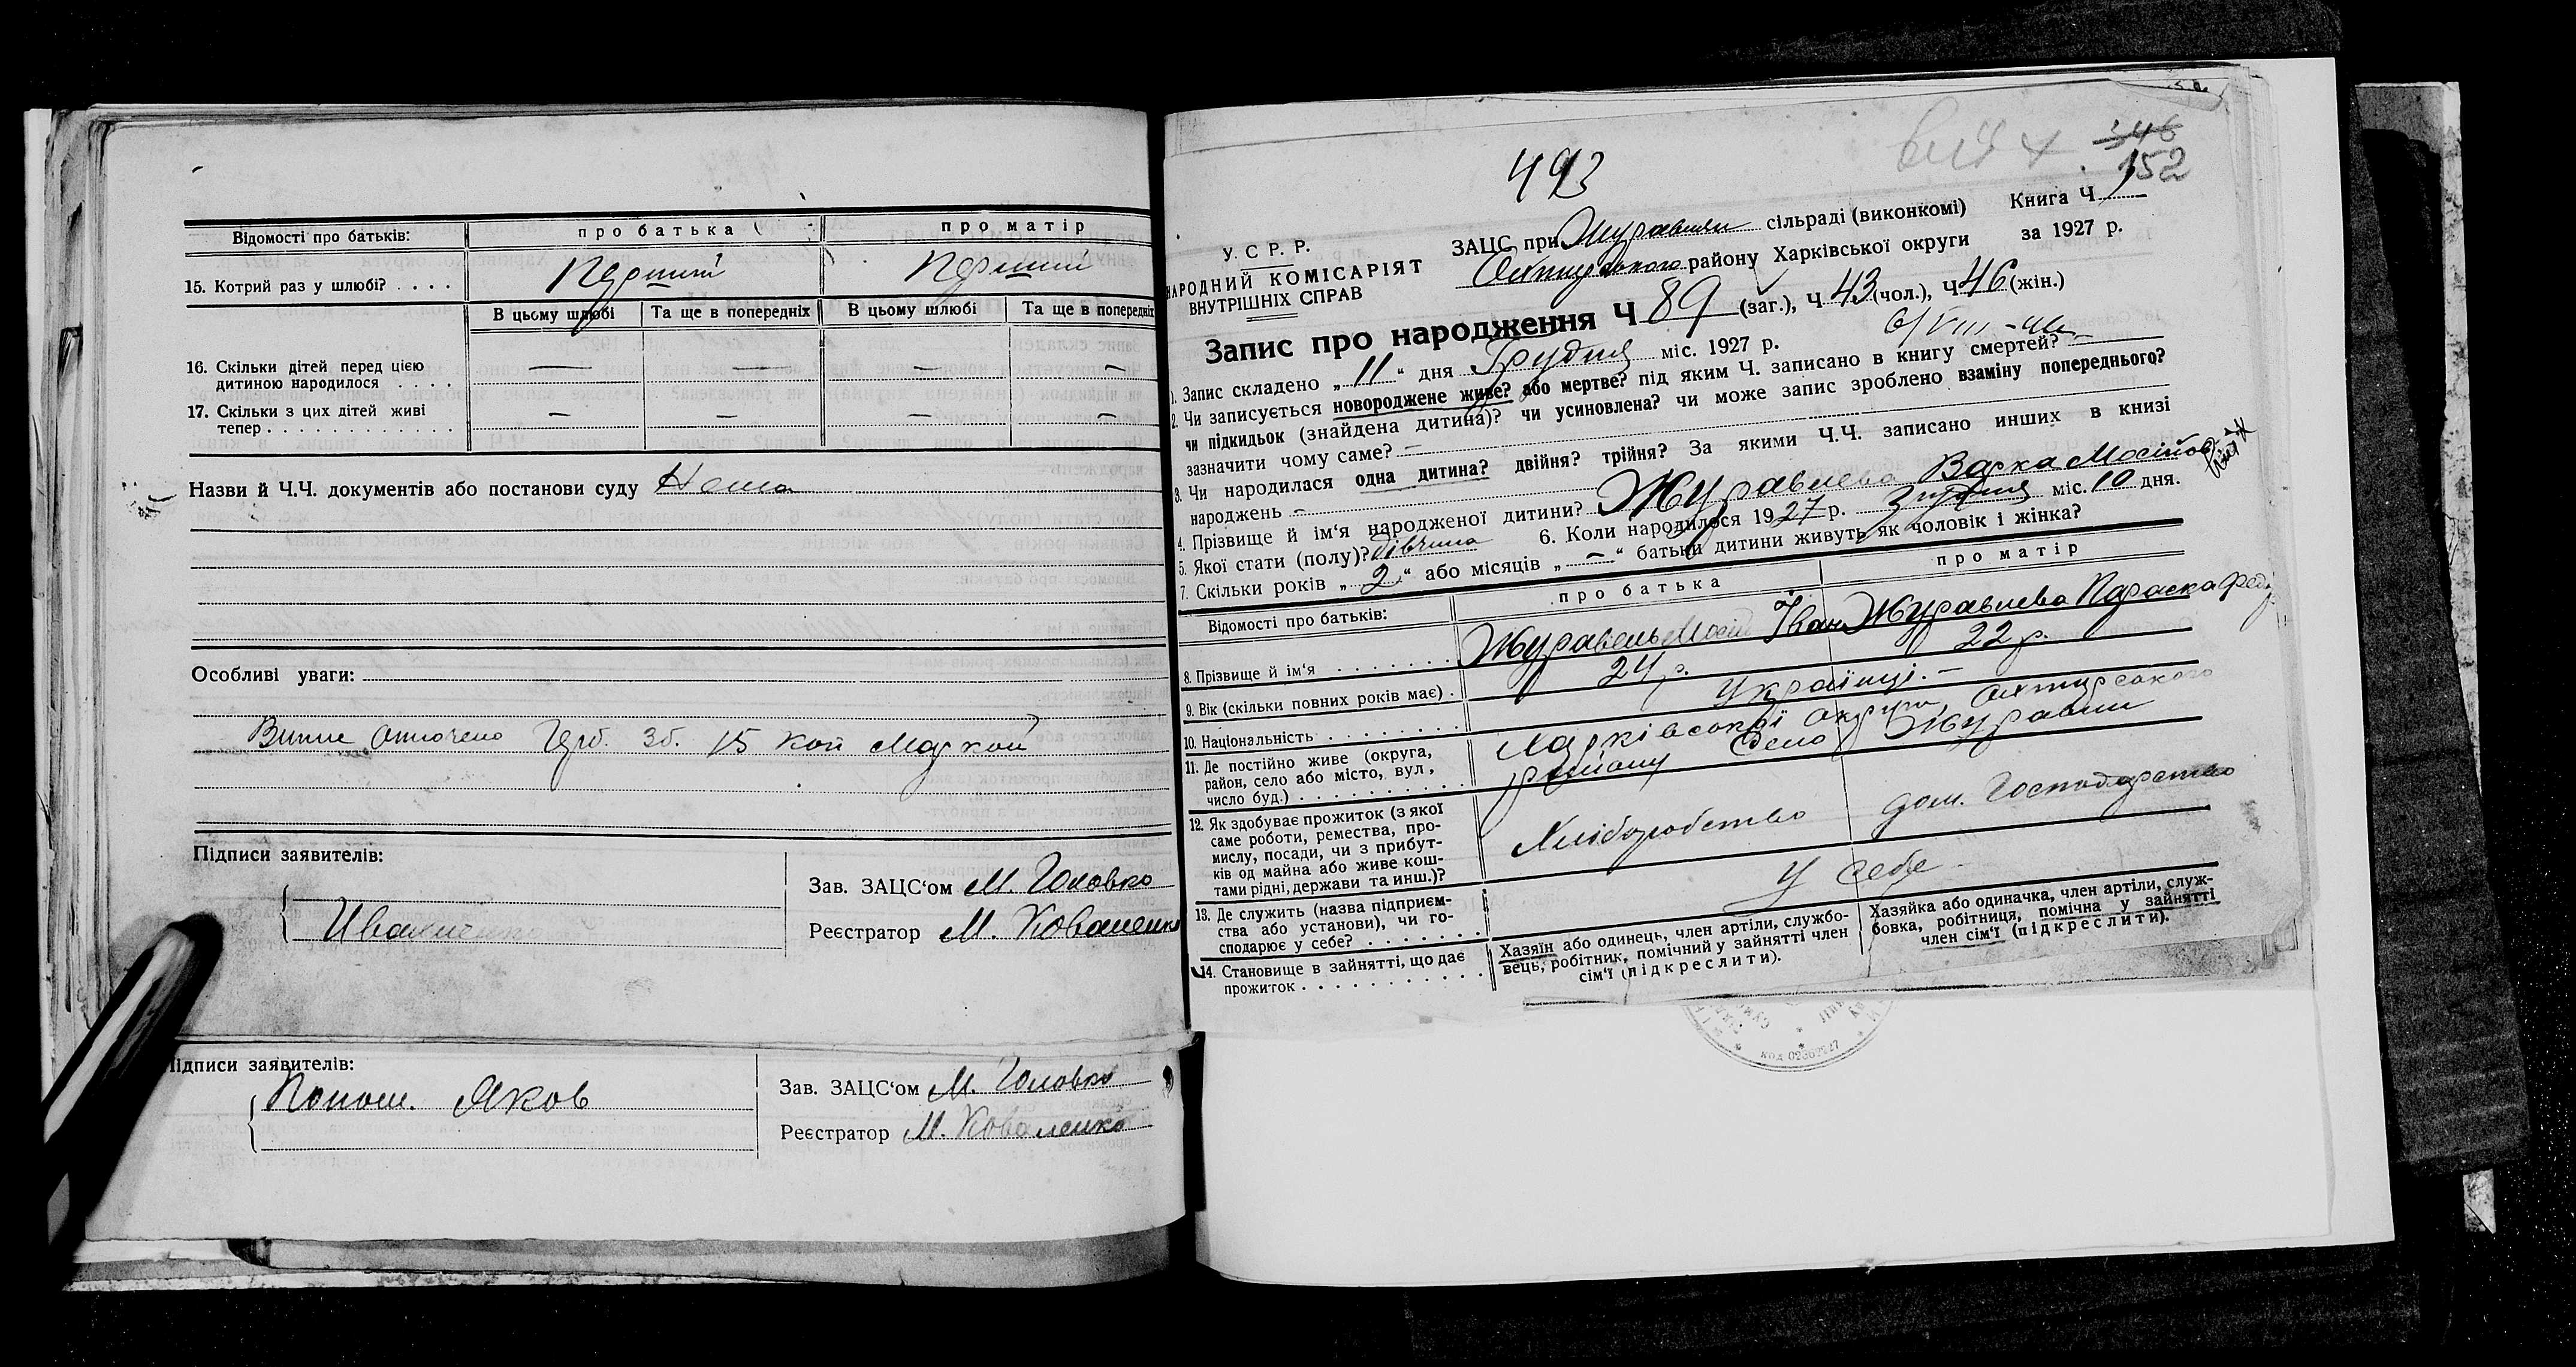 Відомості про батьків: про батька про матір
15. Котрий раз у шлюбі? . . . . Перший Перший
В цьому шлюбі Та ще в попередніх В цьому шлюбі Та ще в попередніх
16. Скільки дітей перед цією
дитиною народилося . . . . — — — —
17. Скільки з цих дітей живі
тепер . . . . . . . . . . . . — — — —
Назви й Ч.Ч. документів або постанови суду Нема
Особливі уваги:
Герб. Зб. 15 коп маркой
Підписи заявителів:
Зав. ЗАЦС‘ом М. Головко
Реєстратор М. Коваленко
Підписи заявителів:
Яков
Зав. ЗАЦС‘ом М. Головко
Реєстратор М. Коваленко
493
346
152
У. С Р. Р.
НАРОДНИЙ КОМІСАРІЯТ
ВНУТРІШНІХ СПРАВ
ЗАЦС при Журавлян сільраді (виконкомі) Книга Ч 1
Охтирського району Харківської округи за 1927 р.
Запис про народження Ч 89 (заг.), Ч 43 (чол.), Ч 46 (жін.)
1. Запис складено „ 11 “ дня Грудня міс. 1927 р.
2. Чи записується новороджене живе? або мертве? під яким Ч. записано в книгу смертей? —
чи підкидьок (знайдена дитина)? чи усиновлена? чи може запис зроблено взаміну попереднього?
зазначити чому саме? —
3. Чи народилася одна дитина? двійня? трійня? За якими Ч.Ч. записано инших в книзі
народжень —
4. Прізвище й ім‘я народженої дитини? Журавлева Варка Мосійов
5. Якої стати (полу)? дівчина 6. Коли народилося 1927 р. грудня міс. 10 дня.
7. Скільки років „ 2 “ або місяців „ — “ батьки дитини живуть як чоловік і жінка?
Відомості про батьків: про батька про матір
8. Прізвище й ім‘я . . . . . . . Журавель Мосій Іван Журавлева Параска Фед
9. Вік (скільки повних років має) . 24 р. 22 р.
10. Національність . . . . . . . Українці. —
11. Де постійно живе (округа, Харківської Округи, Охтирського
район, село або місто, вул, району Село Журавни
число буд.) . . . . . . . . . .
12. Як здобуває прожиток (з якої
саме роботи, ремества, про-
мислу, посади, чи з прибут- Хліборобство дом. Господарство
ків од майна або живе кош-
тами рідні, держави та инш.)?
13. Де служить (назва підприєм-
ства або установи), чи го- У себе —
сподарює у себе? . . . . . . . .
14. Становище в зайнятті, що дає
прожиток . . . . . . . . . . .
Хазяїн або одинець, член артіли, службо-
вець, робітник, помічний у зайнятті член
сім‘ї (підкреслити).
Хазяйка або одиначка, член артіли, служ-
бовка, робітниця, помічна у зайнятті
член сім‘ї (підкреслити).